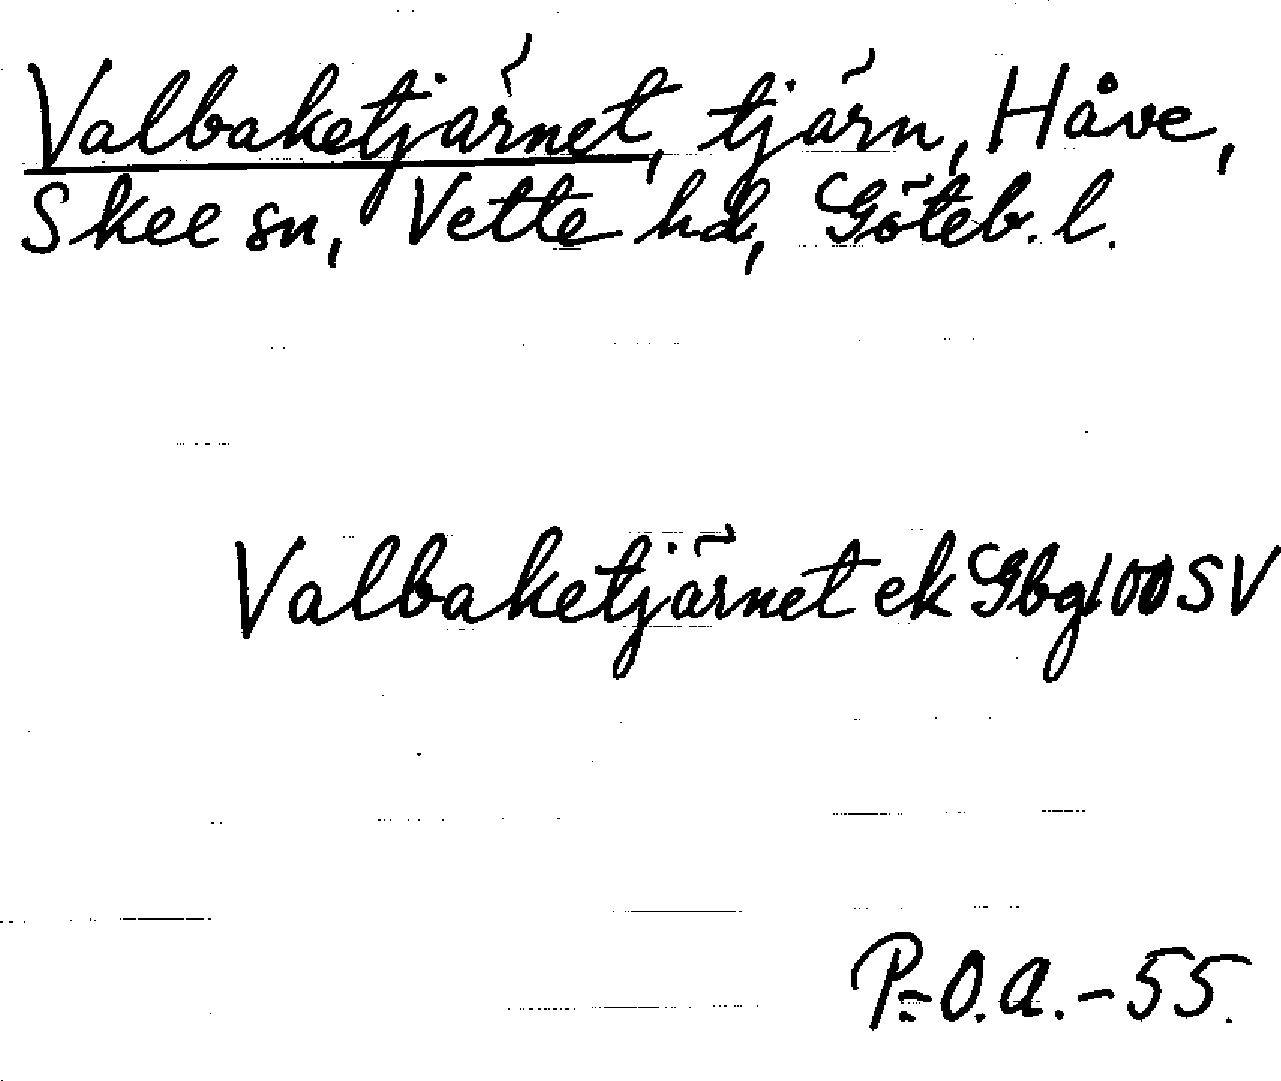 Valbaketjärnet, tjärn, Håve,
Skee sn, Vette hd, Göteb. l.
Valbaketjärnet ek Gbg 100 SV
P.-O.A.-55.